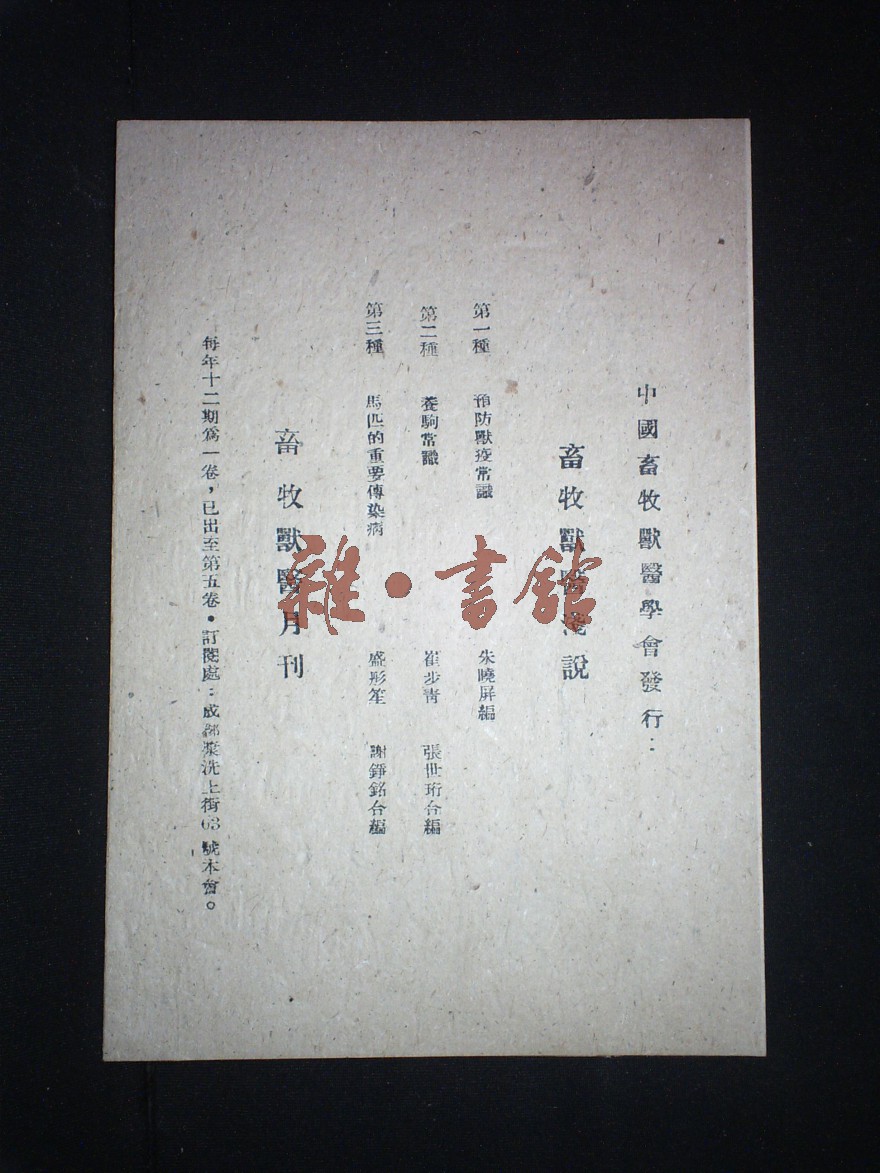 中國畜牧獸醫學會發行：
畜牧獸醫淺說
第一種　預防獸疫常識　朱曉屏編
第二種　養駒常識　崔步青　張世珩合編
第三種　馬匹的重要傳染病　盛彤笙　謝錚銘合編
畜牧獸醫月刊
每年十二期爲一卷，已出至第五卷。訂閱處：成都漿洗上街63號本會。
雜·書館